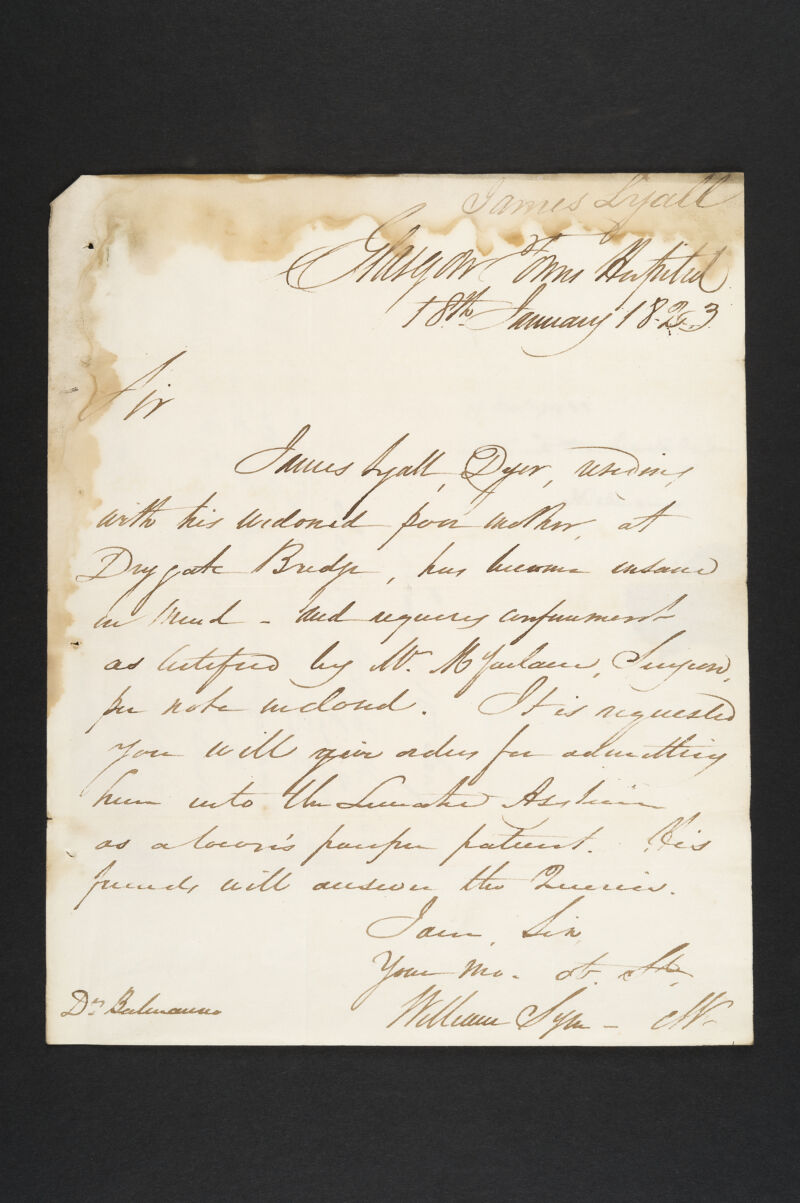 James Lyall
Glasgow Towns Hospital
18th January 1823
Sir
James Lyall, Dyer, residing
with his widowed poor mother, at
Drygate Bridge, has become insane
in mind - and requires confinement
as certified by Mr. McFarlane, Surgeon,
per note inclosed. It is requested
you will give orders for admitting
him into the Lunatic Asylum
as a town's pauper patient. His
friends will answer the Queries.
I am, Sir,
Your mo. ob. St.
William Sym -
Dr. Balmanno